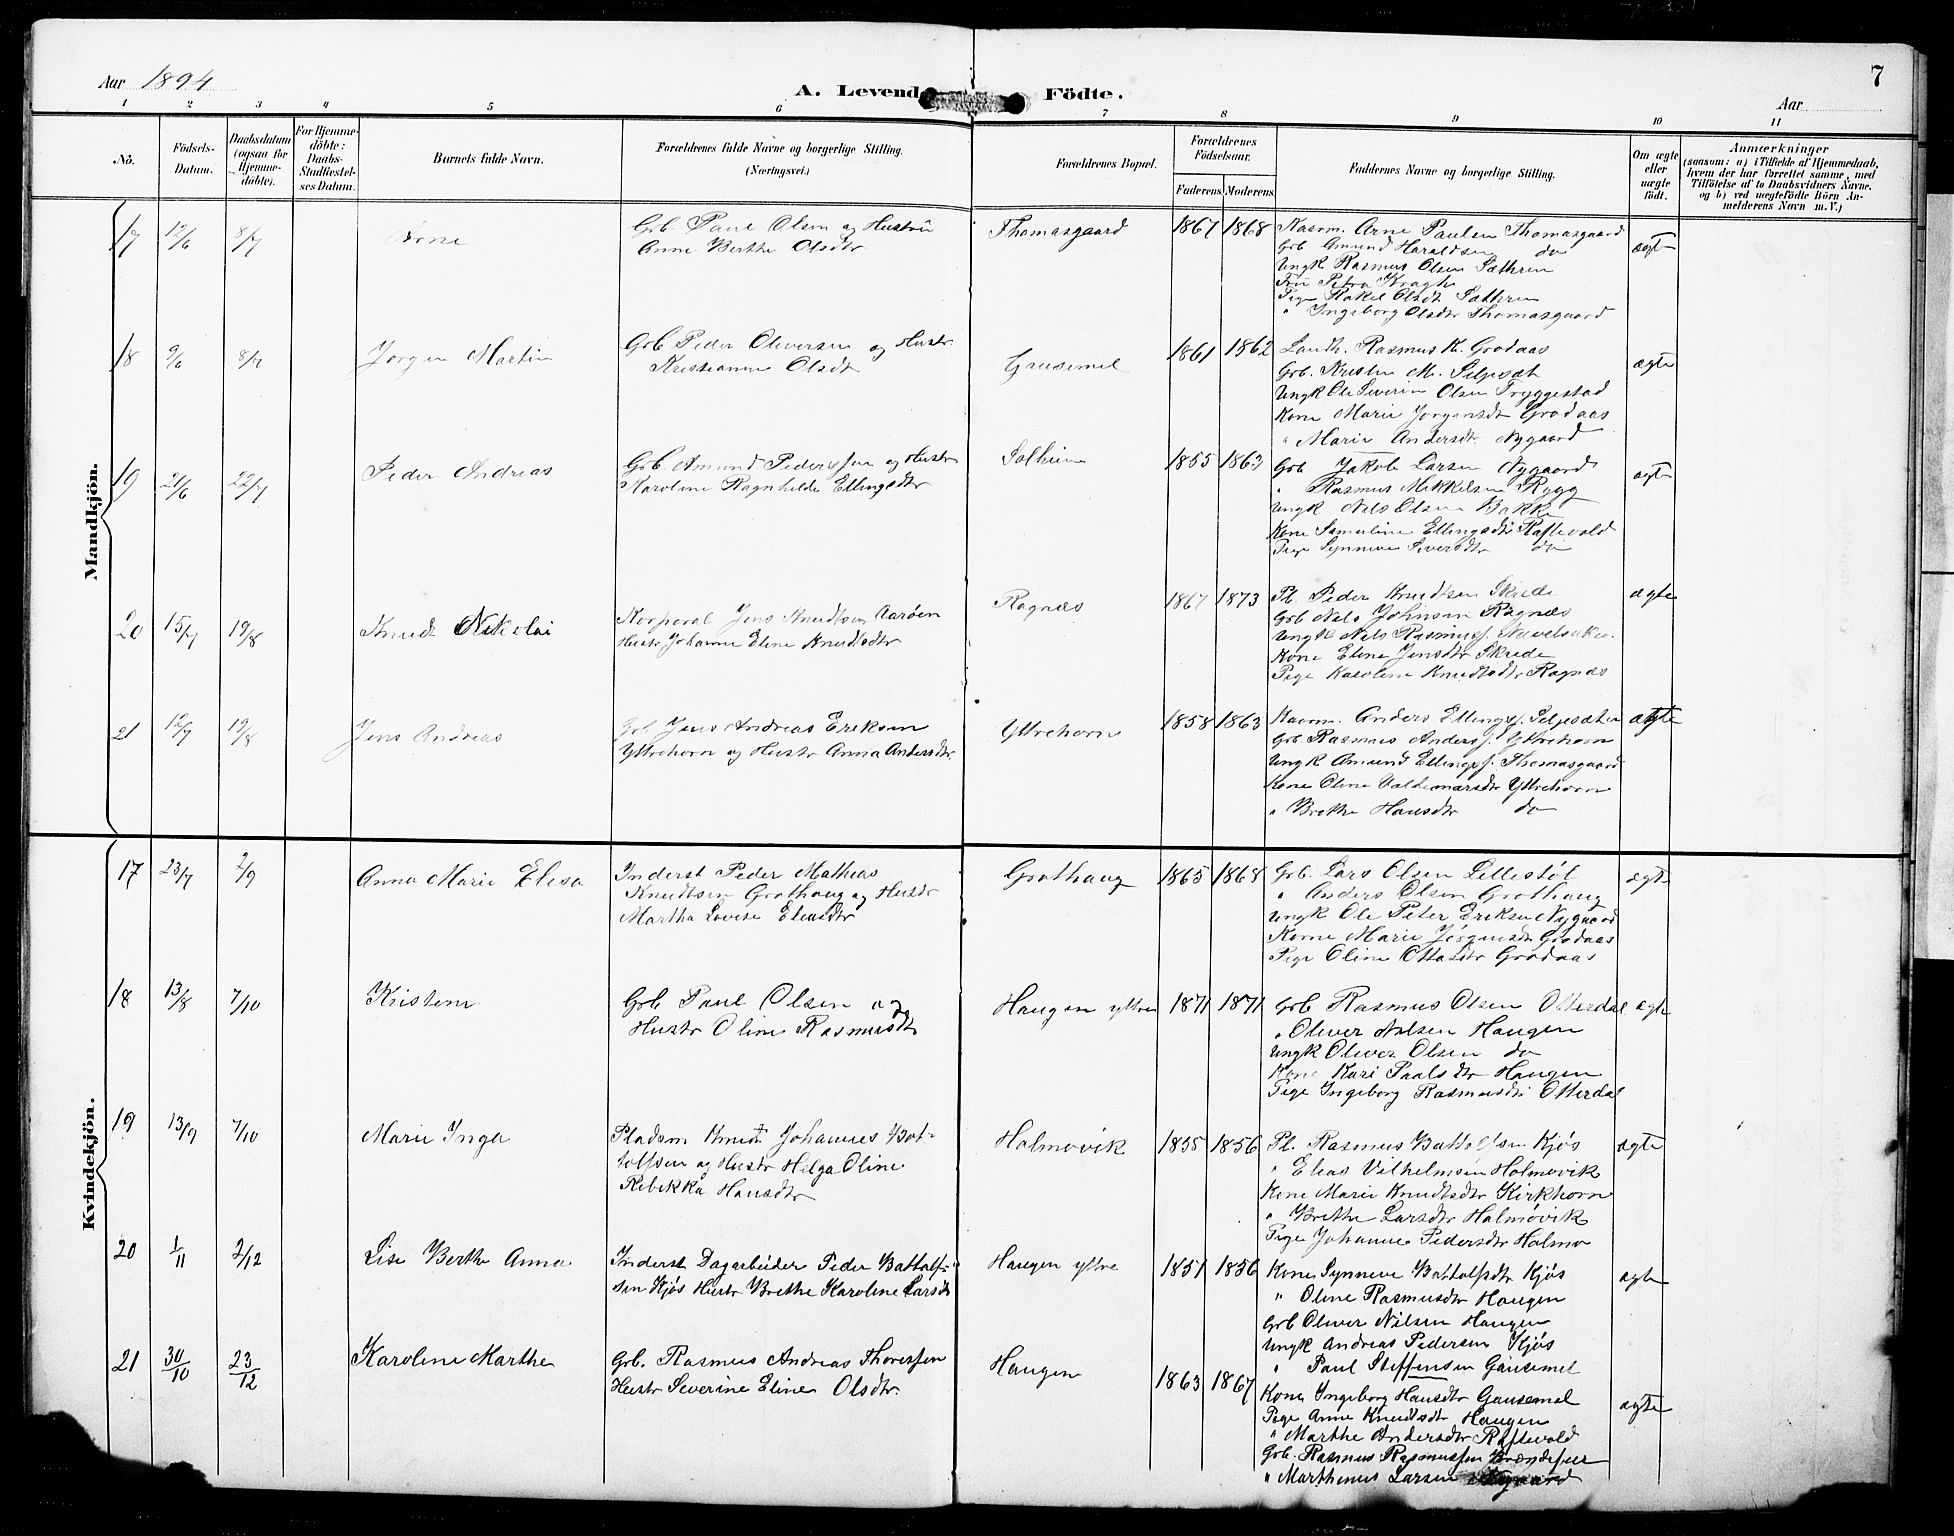 7
Aar 1894
A. Levende Födte.
Aar
1 2 3 4 5 6 7 8 9 10 11
No.
Födsels-Datum.
Daabsdatum (ogsaa for Hjemme-döbte).
For Hjemme-döbte: Daabs-Stadfæstel-ses Datum.
Barnets fulde Navn.
Forældrenes fulde Navne og borgerlige Stilling. (Næringsvei.)
Forældrenes Bopæl.
Forældrenes Födselsaar.
Faderens. Moderens.
Faddernes Navne og borgerlige Stilling.
Om ægte eller uægte födt.
Anmærkninger
(saasom: a) i Tilfælde af Hjemmedaab,
hvem der har forrettet samme, med
Tilföielse af to Daabsvidners Navne,
og b) ved uægtefödte Börn An-
melderens Navn m. V.)
Mandkjön.
17 12/6 8/7 Arne
Grb. Paul Olsen og Hustru
Anne Berthe Olsdtr
Thomasgaard 1867 1868
Navm. Arne Paulsen Thomasgaard
Grb Amund Haraldsen do
Ungk Rasmus Olsen Sæthren
Fru Petra Kragh
Pige Rakel Olsdtr Sæthren
" Ingeborg Olsdtr Thomasgaard
ægte
18 9/6 8/7 Jørgen Martin
Grb Peder Oliversen og Hustr
Kristianne Olsdt
Gausemel 1861 1862
Landh. Rasmus K. Grodaas
Grb. Kristen M. Seljesæt
Ungk Ole Severin Olsen Tryggestad
Kone Marie Jørgensdt Grodaas
" Marie Andersdtr Nygaard
ægte
19 21/6 22/7 Peder Andreas
Grb. Amund Pederssen og Hustr
Karoline Ragnhilde Ellingsdtr
Solheim 1855 1863
Grb Jakob Larsen Nygaard
" Rasmus Mikkelsen Rygg
Ungk Nils Olsen Bakke
Kone Samuline Ellingsdtr Raftevold
Pige Synneve Siversdtr do
ægte
20 15/7 19/8 Knud Nikolai
Korporal Jens Knudtsen Aarøen
Hustr Johanne Eline Knudtsdtr
Ragnæs 1867 1873
Pl. Peder Knudtsen Skrede
Grb Nils Johnsen Ragnæs
Ungk Nils Rasmusf.
Kone Eline Jensdtr Skrede
Pige Karoline Knudtsdtr Ragnæs
ægte
21 12/7 19/8 Jens Andreas
Grb Jens Andreas Eriksen
Yttrehorn og Hustr Anna Andersdtr
Yttrehorn 1858 1863
Navm. Anders Ellingsf. Seljesæter
Grb. Rasmus Andersf. Yttrehorn
Ungk Amund Ellingsf. Thomasgaard
Kone Oline Valdemarsdtr Yttrehorn
" Brethe Hansdtr do
ægte
Kvindekjön.
17 23/7 2/9 Anna Marie Elisa
Inderst Peder Mathias
Knudtsen Grothaug og Hustr
Martha Lovise Eliasdtr
Grothaug 1865 1868
Grb. Lars Olsen Lillestøl
" Anders Olsen Grothaug
Ungk Ole Peter Eriksen Nygaard
Kone Marie Jørgensdtr Grodaas
Pige Oline Ottasdtr Grodaas
ægte
18 13/8 7/10 Kristene
Grb Paul Olsen og
Hustr Oline Rasmusdtr
Haugen yttre 1871 1871
Grb Rasmus Olsen Otterdal
" Oliver Nilsen Haugen
Ungk Oliver Olsen do
Kone Kari Paalsdtr Haugen
Pige Ingeborg Rasmusdtr Otterdal
ægte
19 13/9 7/10 Marie Inga
Pladsm Knudt Johannes Bot-
tolfsen og Hustr Helga Oline
Rebikka Hansdtr
Holmøvik 1855 1856
Pl. Rasmus Bottolfsen Kjøs
" Elias Vilhelmsen Holmøvik
Kone Marie Knudtsdtr Kirkhorn
" Brethe Larsdtr Holmøvik
Pige Johanne Pedersdtr Holmø
ægte
20 1/11 2/12 Lise Berthe Anna
Inderst Dagarbeider Peder Bottolf-
sen Kjøs Hustr Brethe Karoline Larsdt
Haugen yttre 1851 1856
Kone Synneve Bottolfsdtr Kjøs
" Oline Rasmusdtr Haugen
Grb Oliver Nilsen Haugen
Ungk Andreas Pedersen Kjøs
" Paul Steffensen Gausemel
ægte
21 30/10 23/12 Karoline Marthe
Grb. Rasmus Andreas Thoressen
Hustr Severine Eline Olsdtr
Haugen 1863 1867
Kone Ingeborg Hansdtr Gausemel
Pige Anne Knudtsdtr Haugen
" Marthe Andersdtr Raftevold
Grb. Rasmus Rasmussen
" Marthinus Larsen Nygaard
ægte